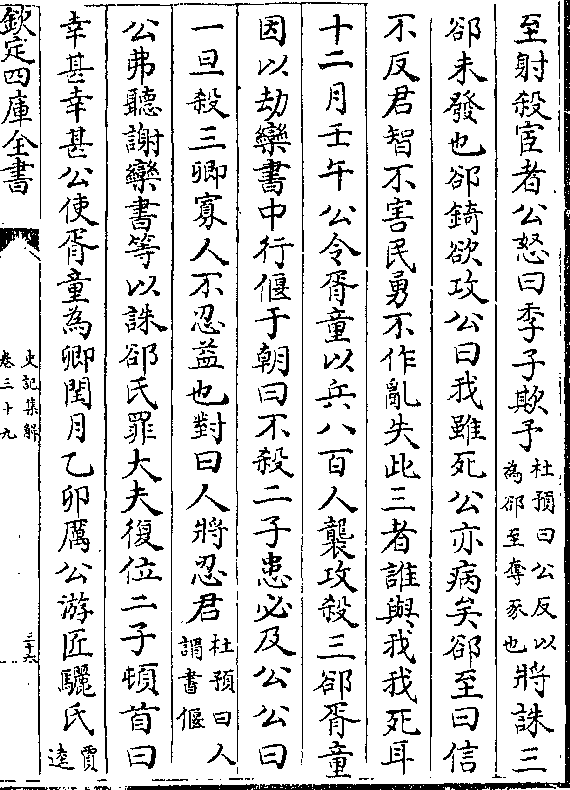 至射殺宦者公怒曰季子欺予杜預曰公反以為郤至奪豕也將誅三
郤未發也郤錡欲攻公曰我雖死公亦病矣郤至曰信
不反君智不害民勇不作亂失此三者誰與我我死耳
十二月壬午公令胥童以兵八百人襲攻殺三郤胥童
因以劫欒書中行偃于朝曰不殺二子患必及公公曰
一旦殺三卿寡人不忍益也對曰人將忍君杜預曰人謂書偃
公弗聽謝欒書等以誅郤氏罪大夫復位二子頓首曰
幸甚幸甚公使胥童為卿閏月乙卯厲公游匠驪氏賈逵
欽定四庫全書
史記集解
卷三十九
三十六